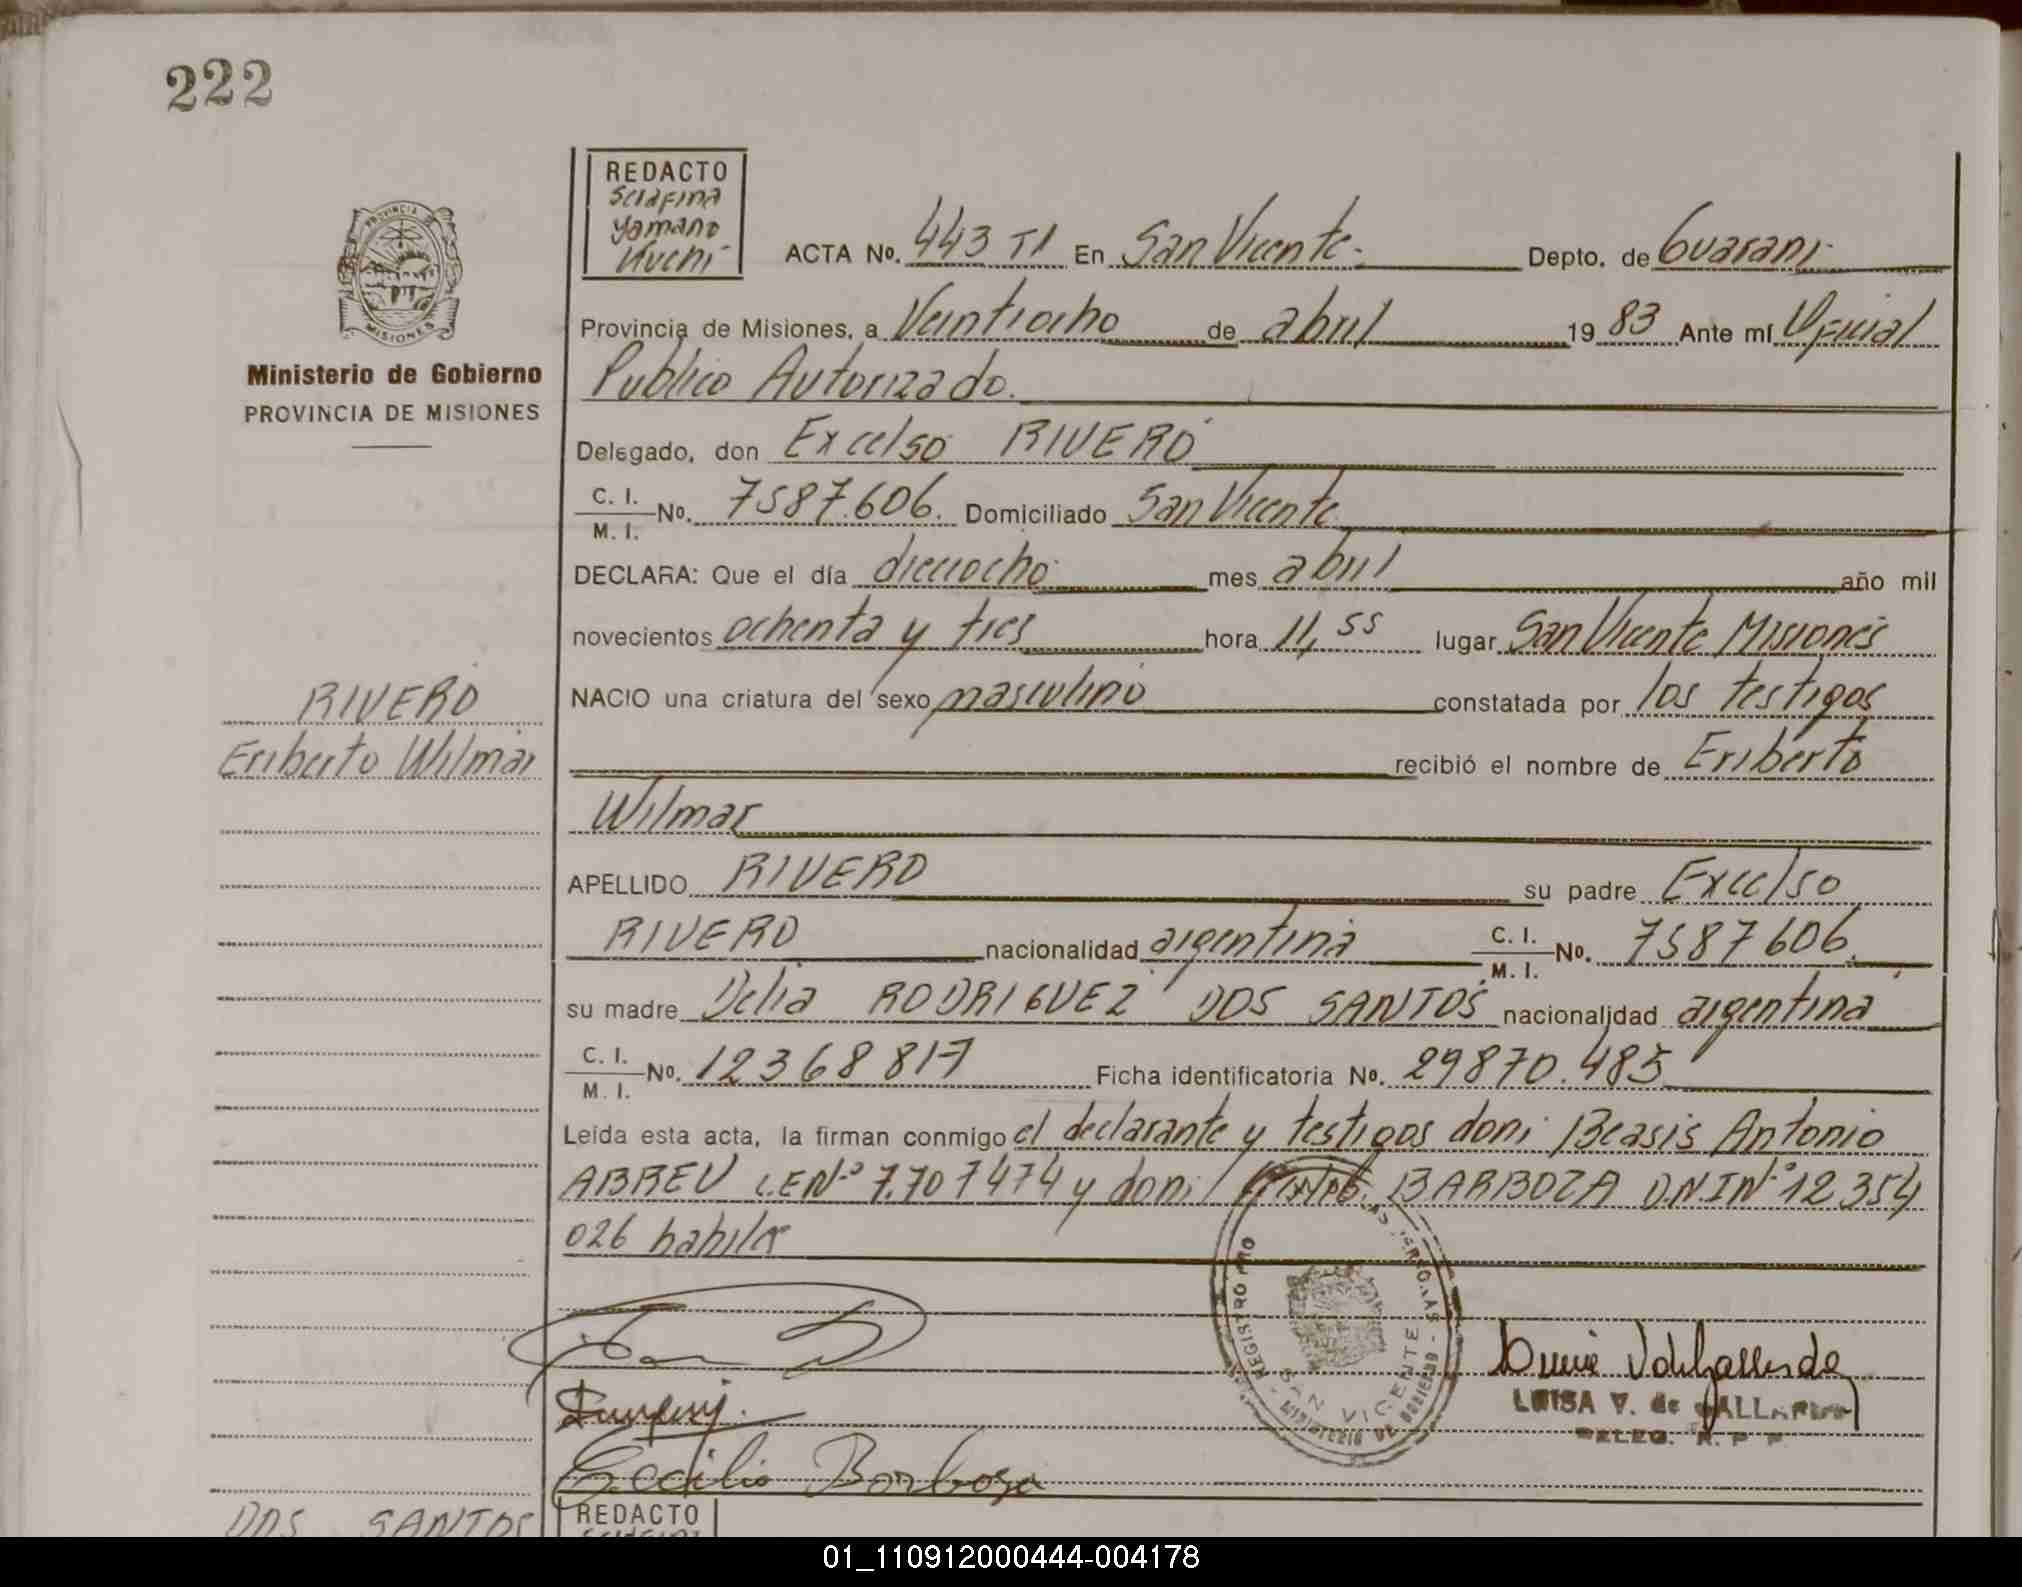 222
REDACTO
Yamano
Kuchi
PROVINCIA
MISIONES
Ministerio de Gobierno
PROVINCIA DE MISIONES
ACTA No. 443 TI En San Vicente.- Depto. de Guaraní
Provincia de Misiones, a Veintiocho de abril 19 83 Ante mí Oficial
Publico Autorizado.
Delegado, don Excelso RIVERO
C. I. / M. I. No. 7587.606. Domiciliado San Vicente
DECLARA: Que el día dieciocho mes abril año mil
novecientos ochenta y tres hora 11,55 lugar San Vicente Misiones
NACIO una criatura del sexo masculino constatada por los testigos
recibió el nombre de Eriberto
Wilmar
RIVERO
Eriberto Wilmar
APELLIDO RIVERO su padre Excelso
RIVERO nacionalidad argentina C. I. / M. I. No. 7587606.
su madre Delia RODRIGUEZ DOS SANTOS nacionalidad argentina
C. I. / M. I. No. 12368817 Ficha identificatoria No. 29870.485
Leída esta acta, la firman conmigo el declarante y testigos don: Beasis Antonio
ABREU L.E Nº 7.707474 y don: BARBOZA D.N.I Nº 12 354
026 habiles
REGISTRO
SAN VICENTE
MINISTERIO DE GOBIERNO
LUISA V. de GALLARDO
DELEG. R. P. P.
Cecilio Barboza
DOS SANTOS
REDACTO
01_110912000444-004178